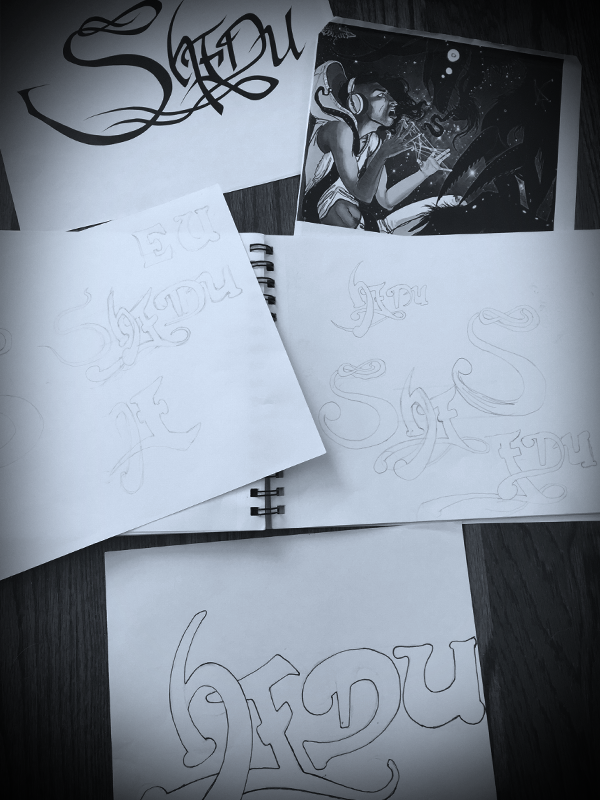 ShEDu
EU
ShEDU
hE
hEDu
S
ShE
EDu
hEDu